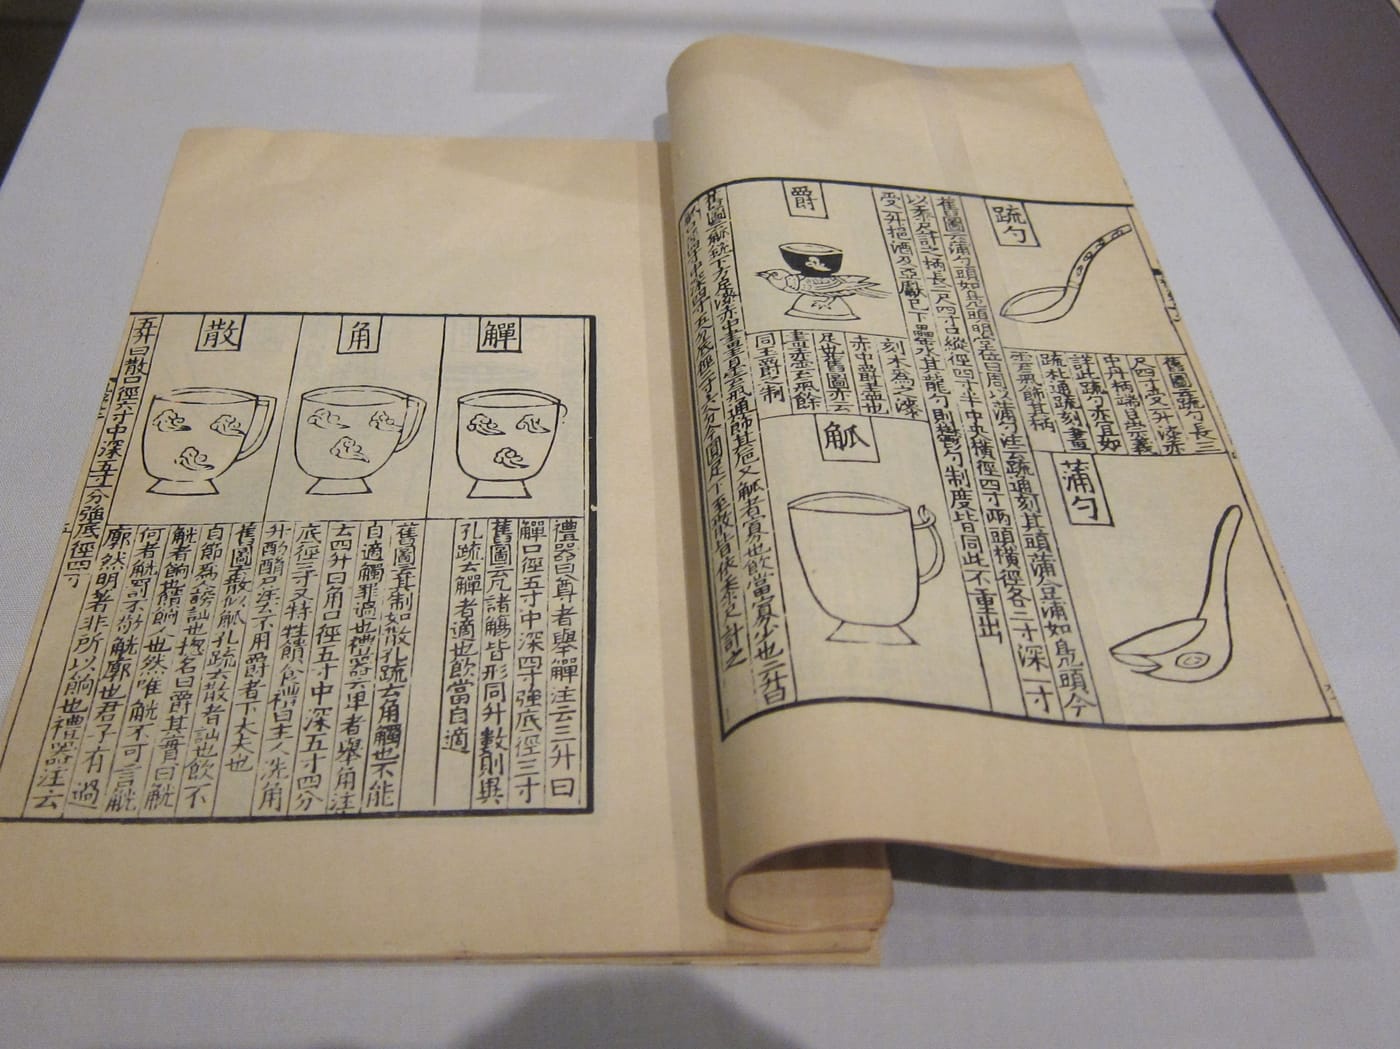 疏勺
舊圖云疏勺長三
尺四寸受一升漆赤
中丹柄端臣崇義
詳此疏勺亦宜如
疏杓通疏刻畫
雲氣飾其柄
蒲勺
舊圖云蒲勺頭如鳧頭明堂位曰周以蒲勺注云疏通刻其頭蒲合蒲如鳧頭今
以黍尺計之柄長二尺四寸口縱徑四寸半中央橫徑四寸兩頭橫徑各二寸深一寸
受一升挹酒及亞獻已下罍水其龍勺則與鬱勺制度皆同此不重出
爵
刻木為之漆
赤中爵盡也
足也舊圖亦云
畫赤雲氣餘
同玉爵之制
觚
舊圖云觚銳下方足漆赤中畫青雲氣通飾其卮又觚者寡也飲當寡少也二升曰
觶
禮器曰尊者舉觶注云三升曰
觶口徑五寸中深四寸強底徑三寸
舊圖云凡諸觴皆形同升數則異
孔疏云觶者適也飲當自適
角
舊圖云其制如散孔疏云角觸也不能
自適觸罪過也禮器云卑者舉角注
云四升曰角口徑五寸中深五寸四分
底徑三寸又特牲饋食禮曰主人洗角
升酌酳尸注云不用爵者下大夫也
散
舊圖云散似觚孔疏云散者訕也飲不
自節為人謗訕也揔名曰爵其實曰觴
觴者餉也饋餉人也然唯觥不可言觴
何者觥罰不敬觥廓也君子有過
廓然明著非所以餉也禮器注云
五升曰散口徑六寸中深五寸一分強底徑四寸